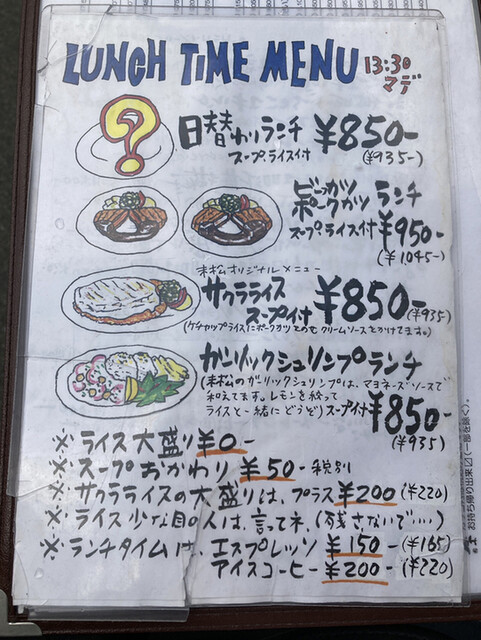 LUNCH TIME MENU 13:30マデ
?
日替わりランチ ¥850-
スープライス付 (¥935-)
ビーフカツ
ポークカツ ランチ
スープライス付 ¥950-
(¥1,045-)
末松オリジナルメニュー
サクラライス
スープ付 ¥850- (¥935)
(ケチャップライスにポークカツをのせ クリームソースをかけてます。)
ガーリックシュリンプランチ
(末松のガーリックシュリンプは、マヨネーズソースで
和えてます。レモンを絞って
ライスと一緒にどうぞ) スープ付 ¥850-
(¥935)
※ライス大盛り¥0-
※スープおかわり ¥50- 税別
※サクラライスの大盛りは、プラス ¥200 (¥220)
※ライス少な目の人は、言ってネ、(残さないで‥‥)
※ランチタイムは、エスプレッソ ¥150- (¥165)
アイスコーヒー ¥200- (¥220)
お持ち帰り出来〼(一部を除く)。